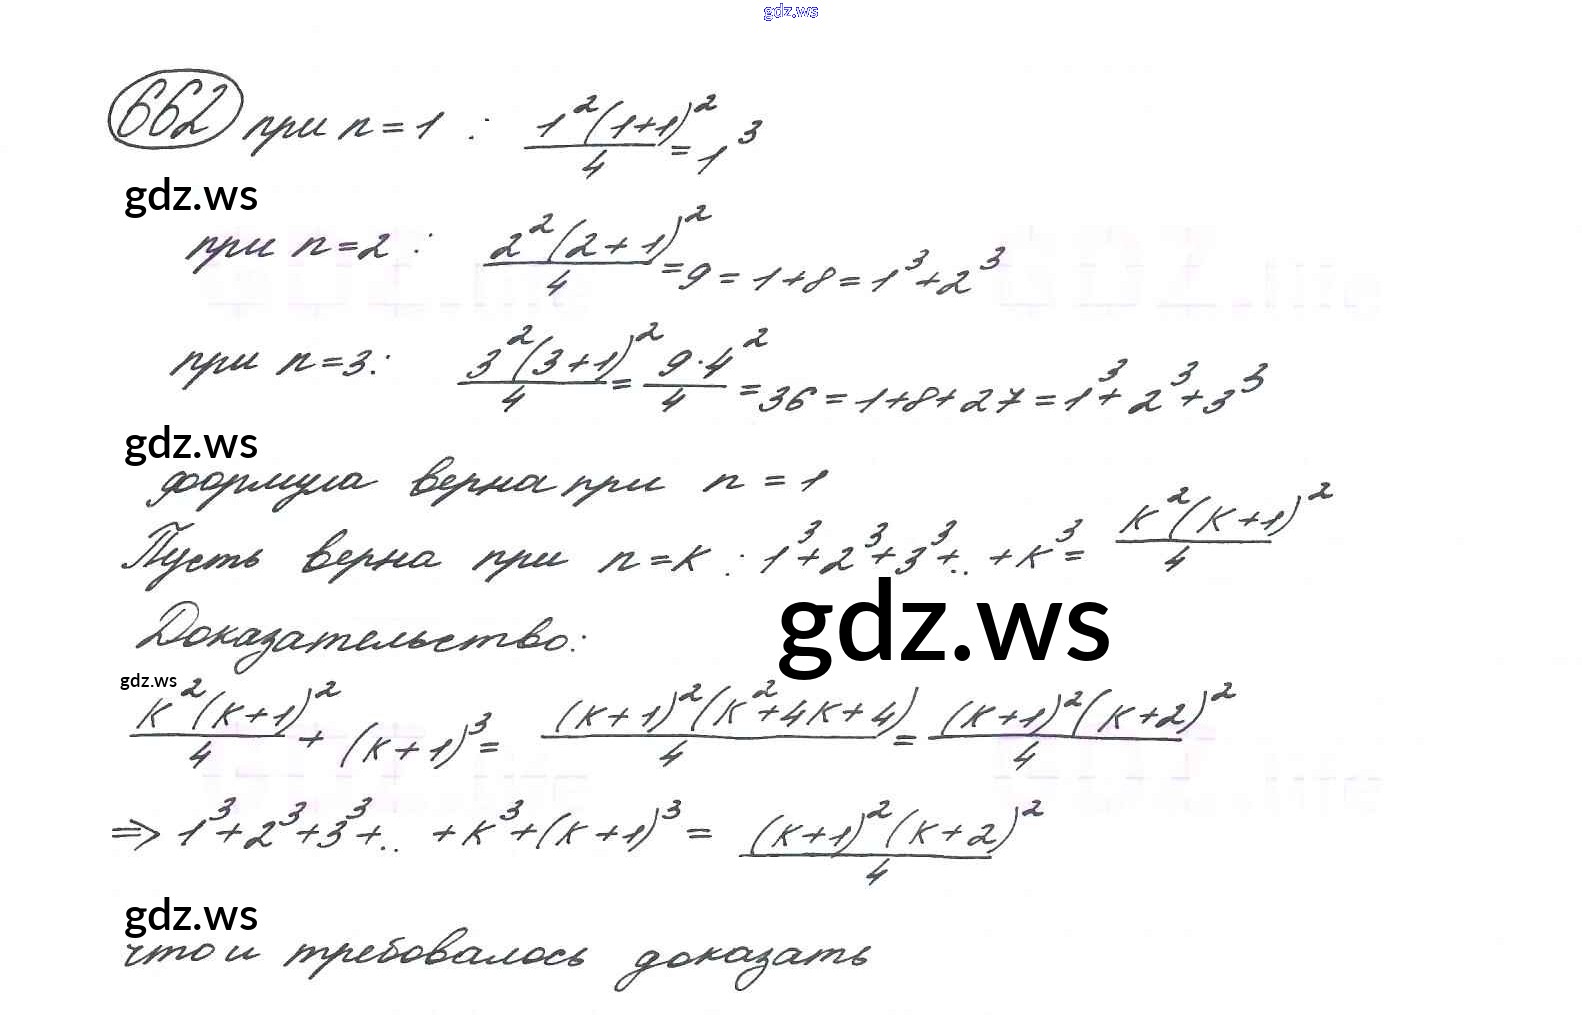 gdz.ws
662 при n=1 : 1²(1+1)²/4 = 1³
gdz.ws
при n=2 : 2²(2+1)²/4 = 9 = 1+8 = 1³+2³
при n=3: 3²(3+1)²/4 = 9·4²/4 = 36 = 1+8+27 = 1³+2³+3³
gdz.ws
формула верна при n = 1
Пусть верна при n=к : 1³+2³+3³+.. +к³= к²(к+1)²/4
gdz.ws
Доказательство:
gdz.ws
к²(к+1)²/4 + (к+1)³ = (к+1)²(к²+4к+4)/4 = (к+1)²(к+2)²/4
⇒ 1³+2³+3³+.. +к³+(к+1)³ = (к+1)²(к+2)²/4
gdz.ws
что и требовалось доказать